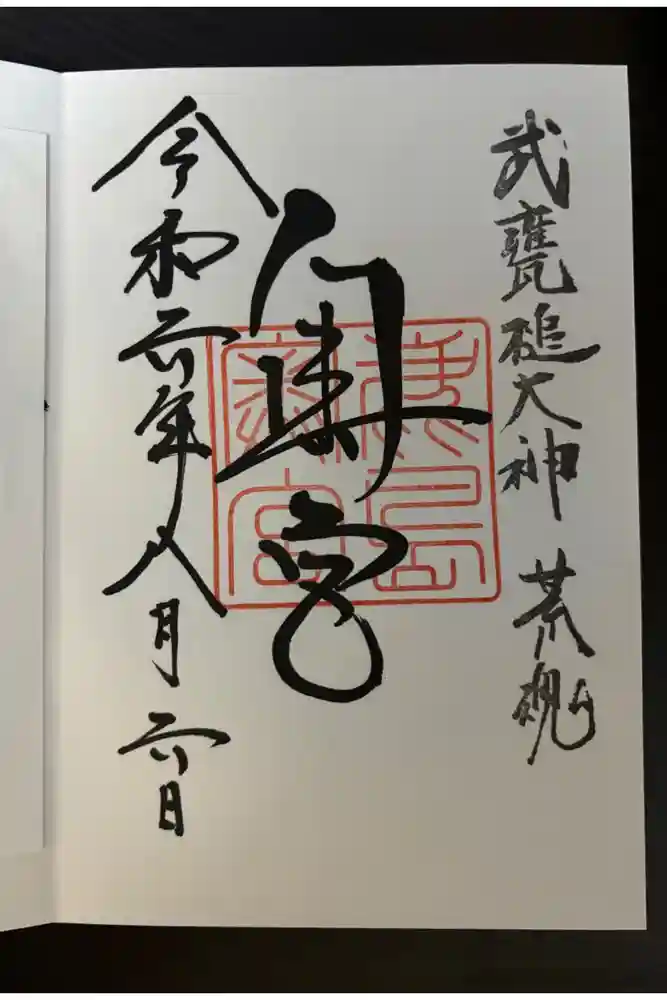 武甕槌大神 荒魂
奥宮
鹿島
奥宮
令和六年八月六日